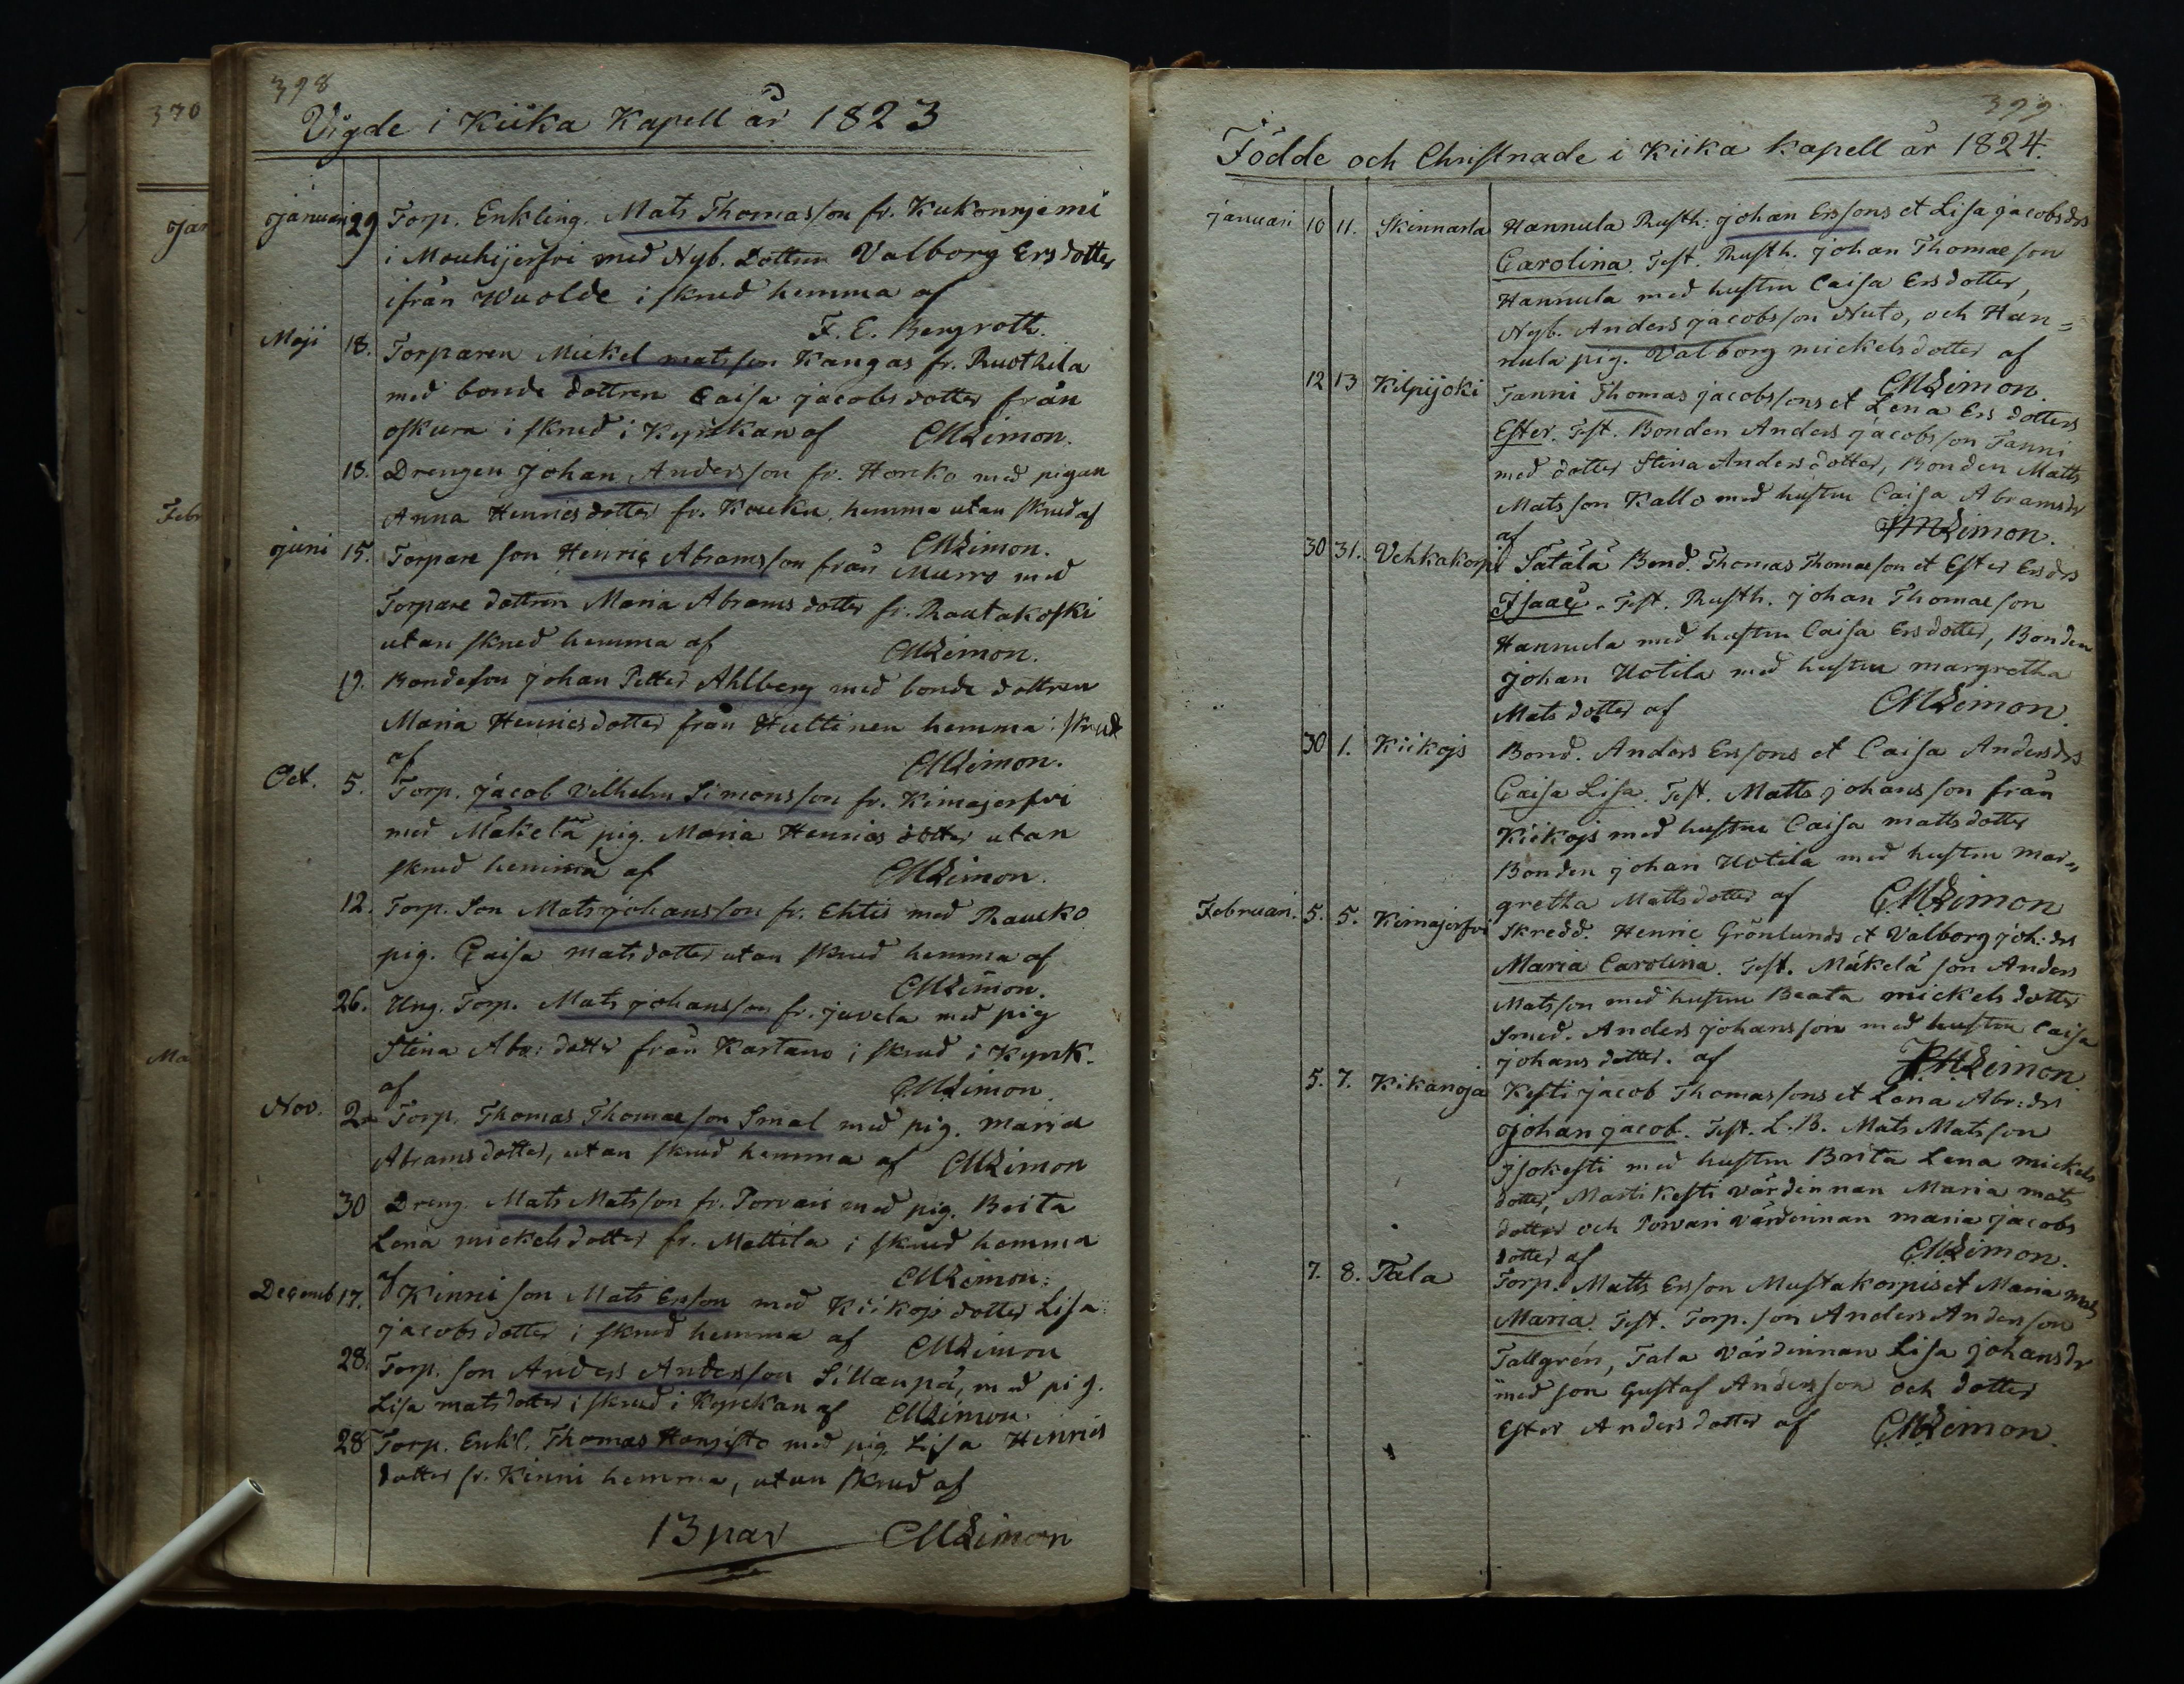 370
Jan
Febr
Ma
398
Vigde i Kiika Kapell år 1823
Januari 29 Torp. Enkling. Mats Thomasson fr. Kukonnjemi
i Mouhijerfvi med Nyb. Dottren Valborg Ersdotter
ifrån Wuolde i skrud hemma af
F. E. Bergroth.
Maji 18. Torparen Mickel matsson Kangas fr. Ruothila
med bonde dottren Caisa jacobsdotter från
oskura i skrud i Kyrkan af CMLimon.
18. Drengen Johan Andersson fr. Horcko med pigan
Anna Henricsdotter fr. Kouku, hemma utan skrud af
CMLimon.
Juni 15. Torpare son Henric Abramsson från Murro med
Torpare dottren Maria Abrams dotter fr. Rautakoski
utan skrud hemma af CMLimon.
19. Bondeson Johan Petter Ahlberg med bonde dottren
Maria Henricsdotter från Huttinen hemma i skrud
af CMLimon.
Oct. 5. Torp. Jacob Vilhelm Simonsson fr. Kimajerfvi
med Mäkelä pig. Maria Henrics dotter utan
skrud hemma af CMLimon.
12. Torp. Son Mats johansson fr. Ehtis med Raucko
pig. Caisa matsdotter utan skrud hemma af
CMLimon.
26. Ung. Torp. Mats johansson fr. juvela med pig
Stina Abr: dotter från Kartano i skrud i Kyrk.
af CMLimon.
Nov. 2 Torp. Thomas Thomasson Smal med pig. maria
Abramsdotter, utan skrud hemma af CMLimon
30 Dreng. Mats Matsson fr. Porvari med pig. Brita
Lena mickelsdotter fr. Mattila i skrud hemma
af CMLimon.
Decemb 17. Kinni son Mats Ersson med Kiikojs dotter Lisa
jacobsdotter i skrud hemma af CMLimon
28. Torp. son Anders Andersson Sillanpä, med pig.
Lisa matsdotter i skrud i Kyrckan af CMLimon.
28 Torp. Enkl. Thomas Hongisto med pig Lisa Henrics
dotter fr. Kinni hemma, utan skrud af
13 par CMLimon
399
Födde och Christnade i Kiika kapell år 1824.
Januari 10 11. Skinnarla Hannula Rusth. johan Erssons et Lisa jacobsdrs
Carolina. Test. Rusth. johan Thomasson
Hannula med hustru Caisa Ersdotter,
Nyb. Anders jacobsson Nuto, och Han=
nula pig. Valborg mickelsdotter af
CMLimon.
12 13 Kilpijoki Tanni Thomas jacobssons et Lena Ers dotters
Ester. Test. Bonden Anders jacobsson Tanni
med dotter Stina Andersdotter, Bonden Matts
Matsson Kallo med hustru Caisa Abramsdr
af CMLimon.
30 31. Vehkakorpi Satälä Bond. Thomas Thomasson et Ester Ersdrs
Isaac. Test. Rusth. johan Thomasson
Hannula med hustru Caisa Ersdotter, Bonden
johan Uotila med hustru margretha
Matsdotter af CMLimon.
30 1. Kiikojs Bond. Anders Erssons et Caisa Andersdrs
Caisa Lisa. Test. Matts johansson från
Kiikojs med hustru Caisa mattsdotter
Bonden johan Uotila med hustru mar=
gretha Mattsdotter af CMLimon
Februari. 5. 5. Kimajerfvi Skredd. Henric Grönlunds et Valborg joh: drs
Maria Carolina. Test. Mäkelä son Anders
Matsson med hustru Beata mickelsdotter
Smed. Anders johansson med hustru Caisa
johansdotter. af CMLimon.
5. 7. Kikanoja Kesti jacob Thomassons et Lena Abr: drs
johan jacob. Test. L.B. Mats Matsson
Isokesti med hustru Brita Lena mickels
dotter, Martikesti värdinnan Maria mats
dotter och Porvari värdinnan maria jacobs
dotter af CMLimon.
7. 8. Tala Torp. Matts Ersson Mustakorpis et Maria mats
Maria. Test. Torp. son Anders Andersson
Tallgrén, Tala värdinnan Lisa johansdr
med son Gustaf Andersson och dotter
Ester Andersdotter af CMLimon.